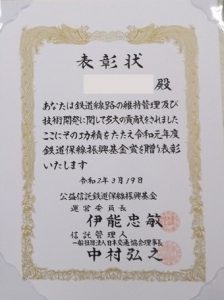 表彰状
殿
あなたは鉄道線路の維持管理及び
技術開発に関して多大の貢献をされました
ここにその功績をたたえ令和元年度
鉄道保線振興基金賞を贈り表彰
いたします
令和2年3月19日
公益信託鉄道保線振興基金
運営委員長
伊能忠敏
信託管理人
一般社団法人日本交通協会理事長
中村弘之